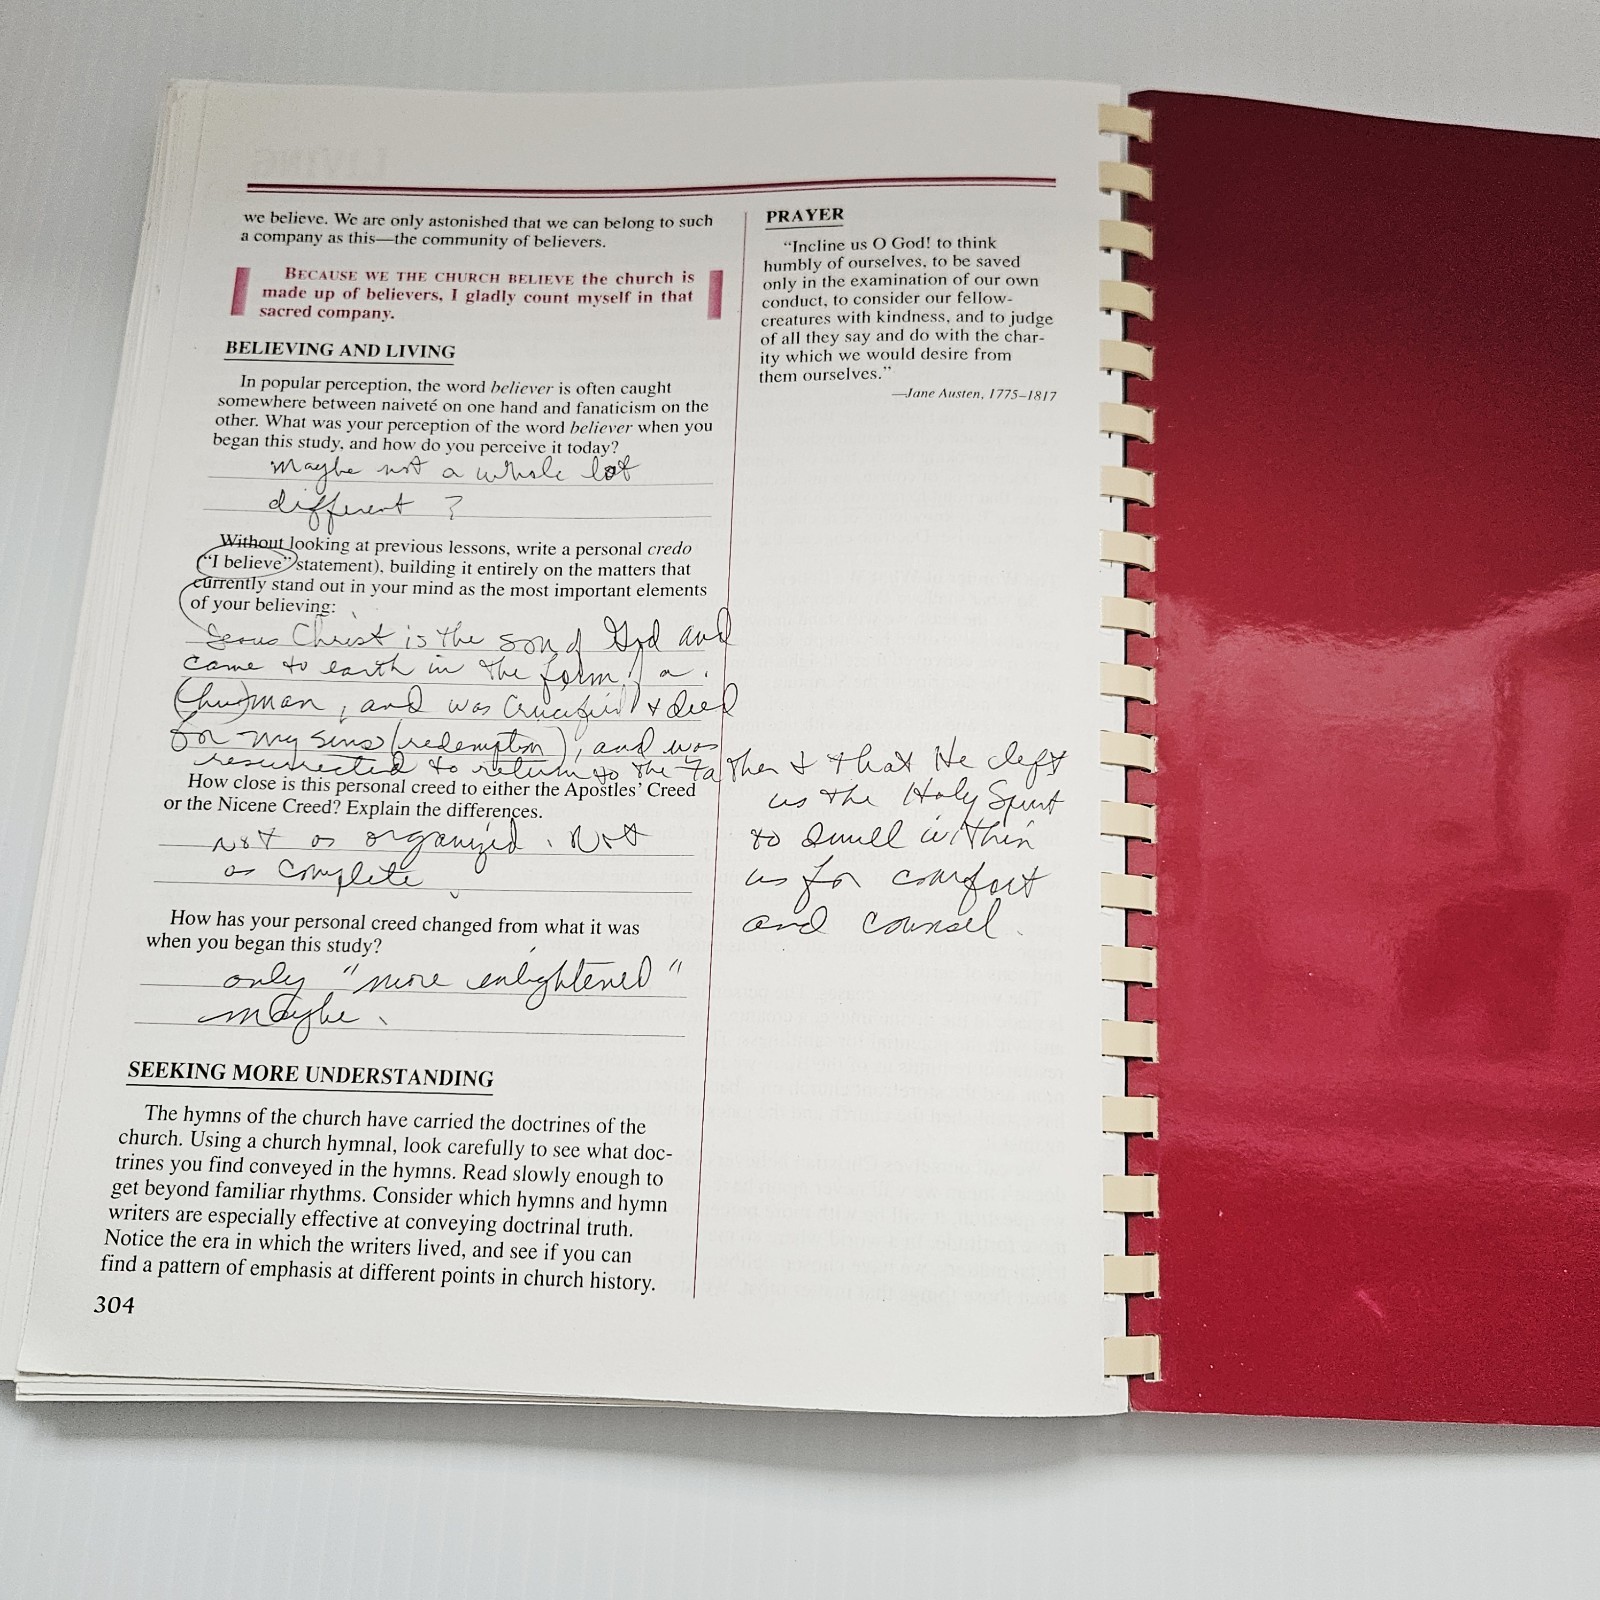 we believe. We are only astonished that we can belong to such
a company as this—the community of believers.
BECAUSE WE THE CHURCH BELIEVE the church is
made up of believers, I gladly count myself in that
sacred company.
BELIEVING AND LIVING
In popular perception, the word believer is often caught
somewhere between naiveté on one hand and fanaticism on the
other. What was your perception of the word believer when you
began this study, and how do you perceive it today?
Maybe not a whole lot
different ?
Without looking at previous lessons, write a personal credo
“I believe” statement), building it entirely on the matters that
currently stand out in your mind as the most important elements
of your believing:
Jesus Christ is the son of God and
came to earth in the form of a
(hu)man, and was crucified & died
for my sins (redemption), and was
resurrected to return to the Father & that He left
us the Holy Spirit
to dwell within
us for comfort
and counsel.
How close is this personal creed to either the Apostles’ Creed
or the Nicene Creed? Explain the differences.
not as organized. Not
as complete
How has your personal creed changed from what it was
when you began this study?
only "more enlightened"
maybe.
SEEKING MORE UNDERSTANDING
The hymns of the church have carried the doctrines of the
church. Using a church hymnal, look carefully to see what doc-
trines you find conveyed in the hymns. Read slowly enough to
get beyond familiar rhythms. Consider which hymns and hymn
writers are especially effective at conveying doctrinal truth.
Notice the era in which the writers lived, and see if you can
find a pattern of emphasis at different points in church history.
304
PRAYER
“Incline us O God! to think
humbly of ourselves, to be saved
only in the examination of our own
conduct, to consider our fellow-
creatures with kindness, and to judge
of all they say and do with the char-
ity which we would desire from
them ourselves.”
—Jane Austen, 1775–1817